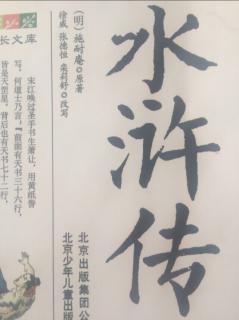 长文库
水浒传
(明)施耐庵◎原著
徐威 张德恒 栾莉舒◎改写
北京出版集团公
北京少年儿童出版
宋江唤过圣手书生萧让,用黄纸誊
写。何道士乃言:“前面有天书三十六行,
皆是天罡星,背后也有天书七十二行,